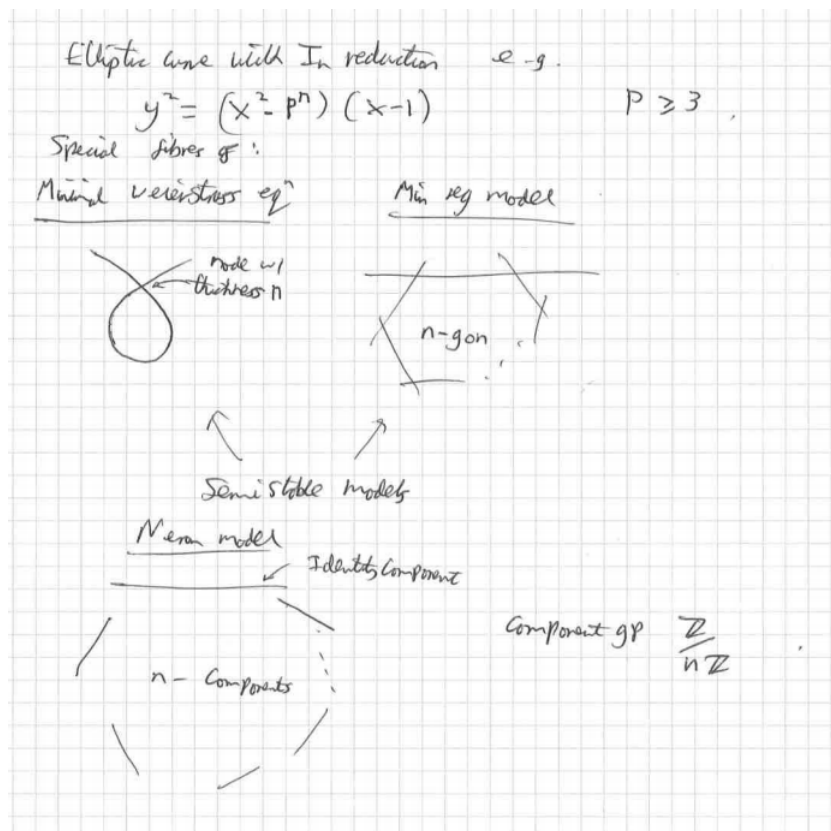 Elliptic curve with In reduction e-g.
y² = (x² - pⁿ) (x-1) p ≥ 3,
Special fibres of :
Minimal weierstrass eqⁿ Min reg model
node w/
thickness n
n-gon
Semistable models
Neron model
Identity Component
Component gp Z/nZ
n - Components